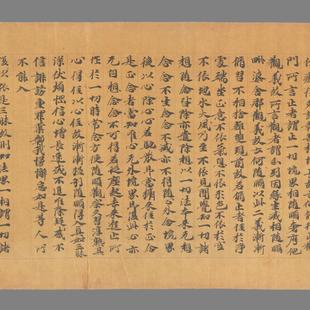 門所言止者謂止一切境界相隨順奢摩他
觀義故所言觀者謂分別因緣生滅相隨順
毗鉢舍那觀義故云何隨順以此二義漸漸
脩習不相捨離雙現前故若脩止者住於靜
處端坐正意不依氣息不依形色不依於空
不依地水火風乃至不依見聞覺知一切諸
想隨念皆除亦遣除想以一切法本來无相
念念不生念念不滅亦不得隨心外念境界
後以心除心心若馳散即當攝來住於正念
是正念者當知唯心无外境界即復此心亦
无自相念念不可得若從坐起去來進止所
作於一切時常念方便隨順觀察久習淳熟其
心得住以心住故漸漸猛利隨順得入真如三昧
深伏煩惱信心增長速成不退唯除疑惑不
信誹謗重罪業障我慢懈怠如是等人所
不能入
復次依是三昧故則知法界一相謂一切諸